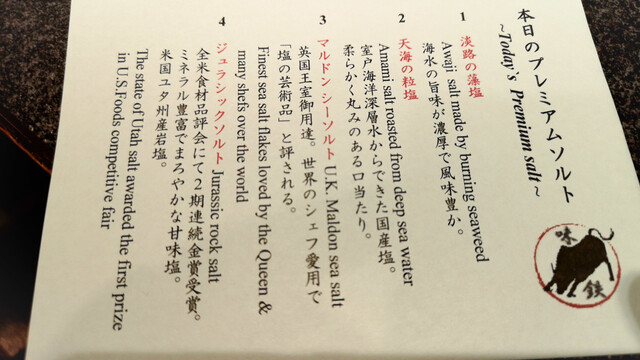 本日のプレミアムソルト
~Today's Premium salt~
味
鉄
1 淡路の藻塩
Awaji salt made by burning seaweed
海水の旨味が濃厚で風味豊か。
2 天海の粒塩
Amami salt roasted from deep sea water
室戸海洋深層水からできた国産塩。
柔らかく丸みのある口当たり。
3 マルドンシーソルト U.K. Maldon sea salt
英国王室御用達。世界のシェフ愛用で
「塩の芸術品」と評される。
Finest sea salt flakes loved by the Queen &
many shefs over the world
4 ジュラシックソルト Jurassic rock salt
全米食材品評会にて2期連続金賞受賞。
ミネラル豊富でまろやかな甘味塩。
米国ユタ州産岩塩。
The state of Utah salt awarded the first prize
in U.S.Foods competitive fair